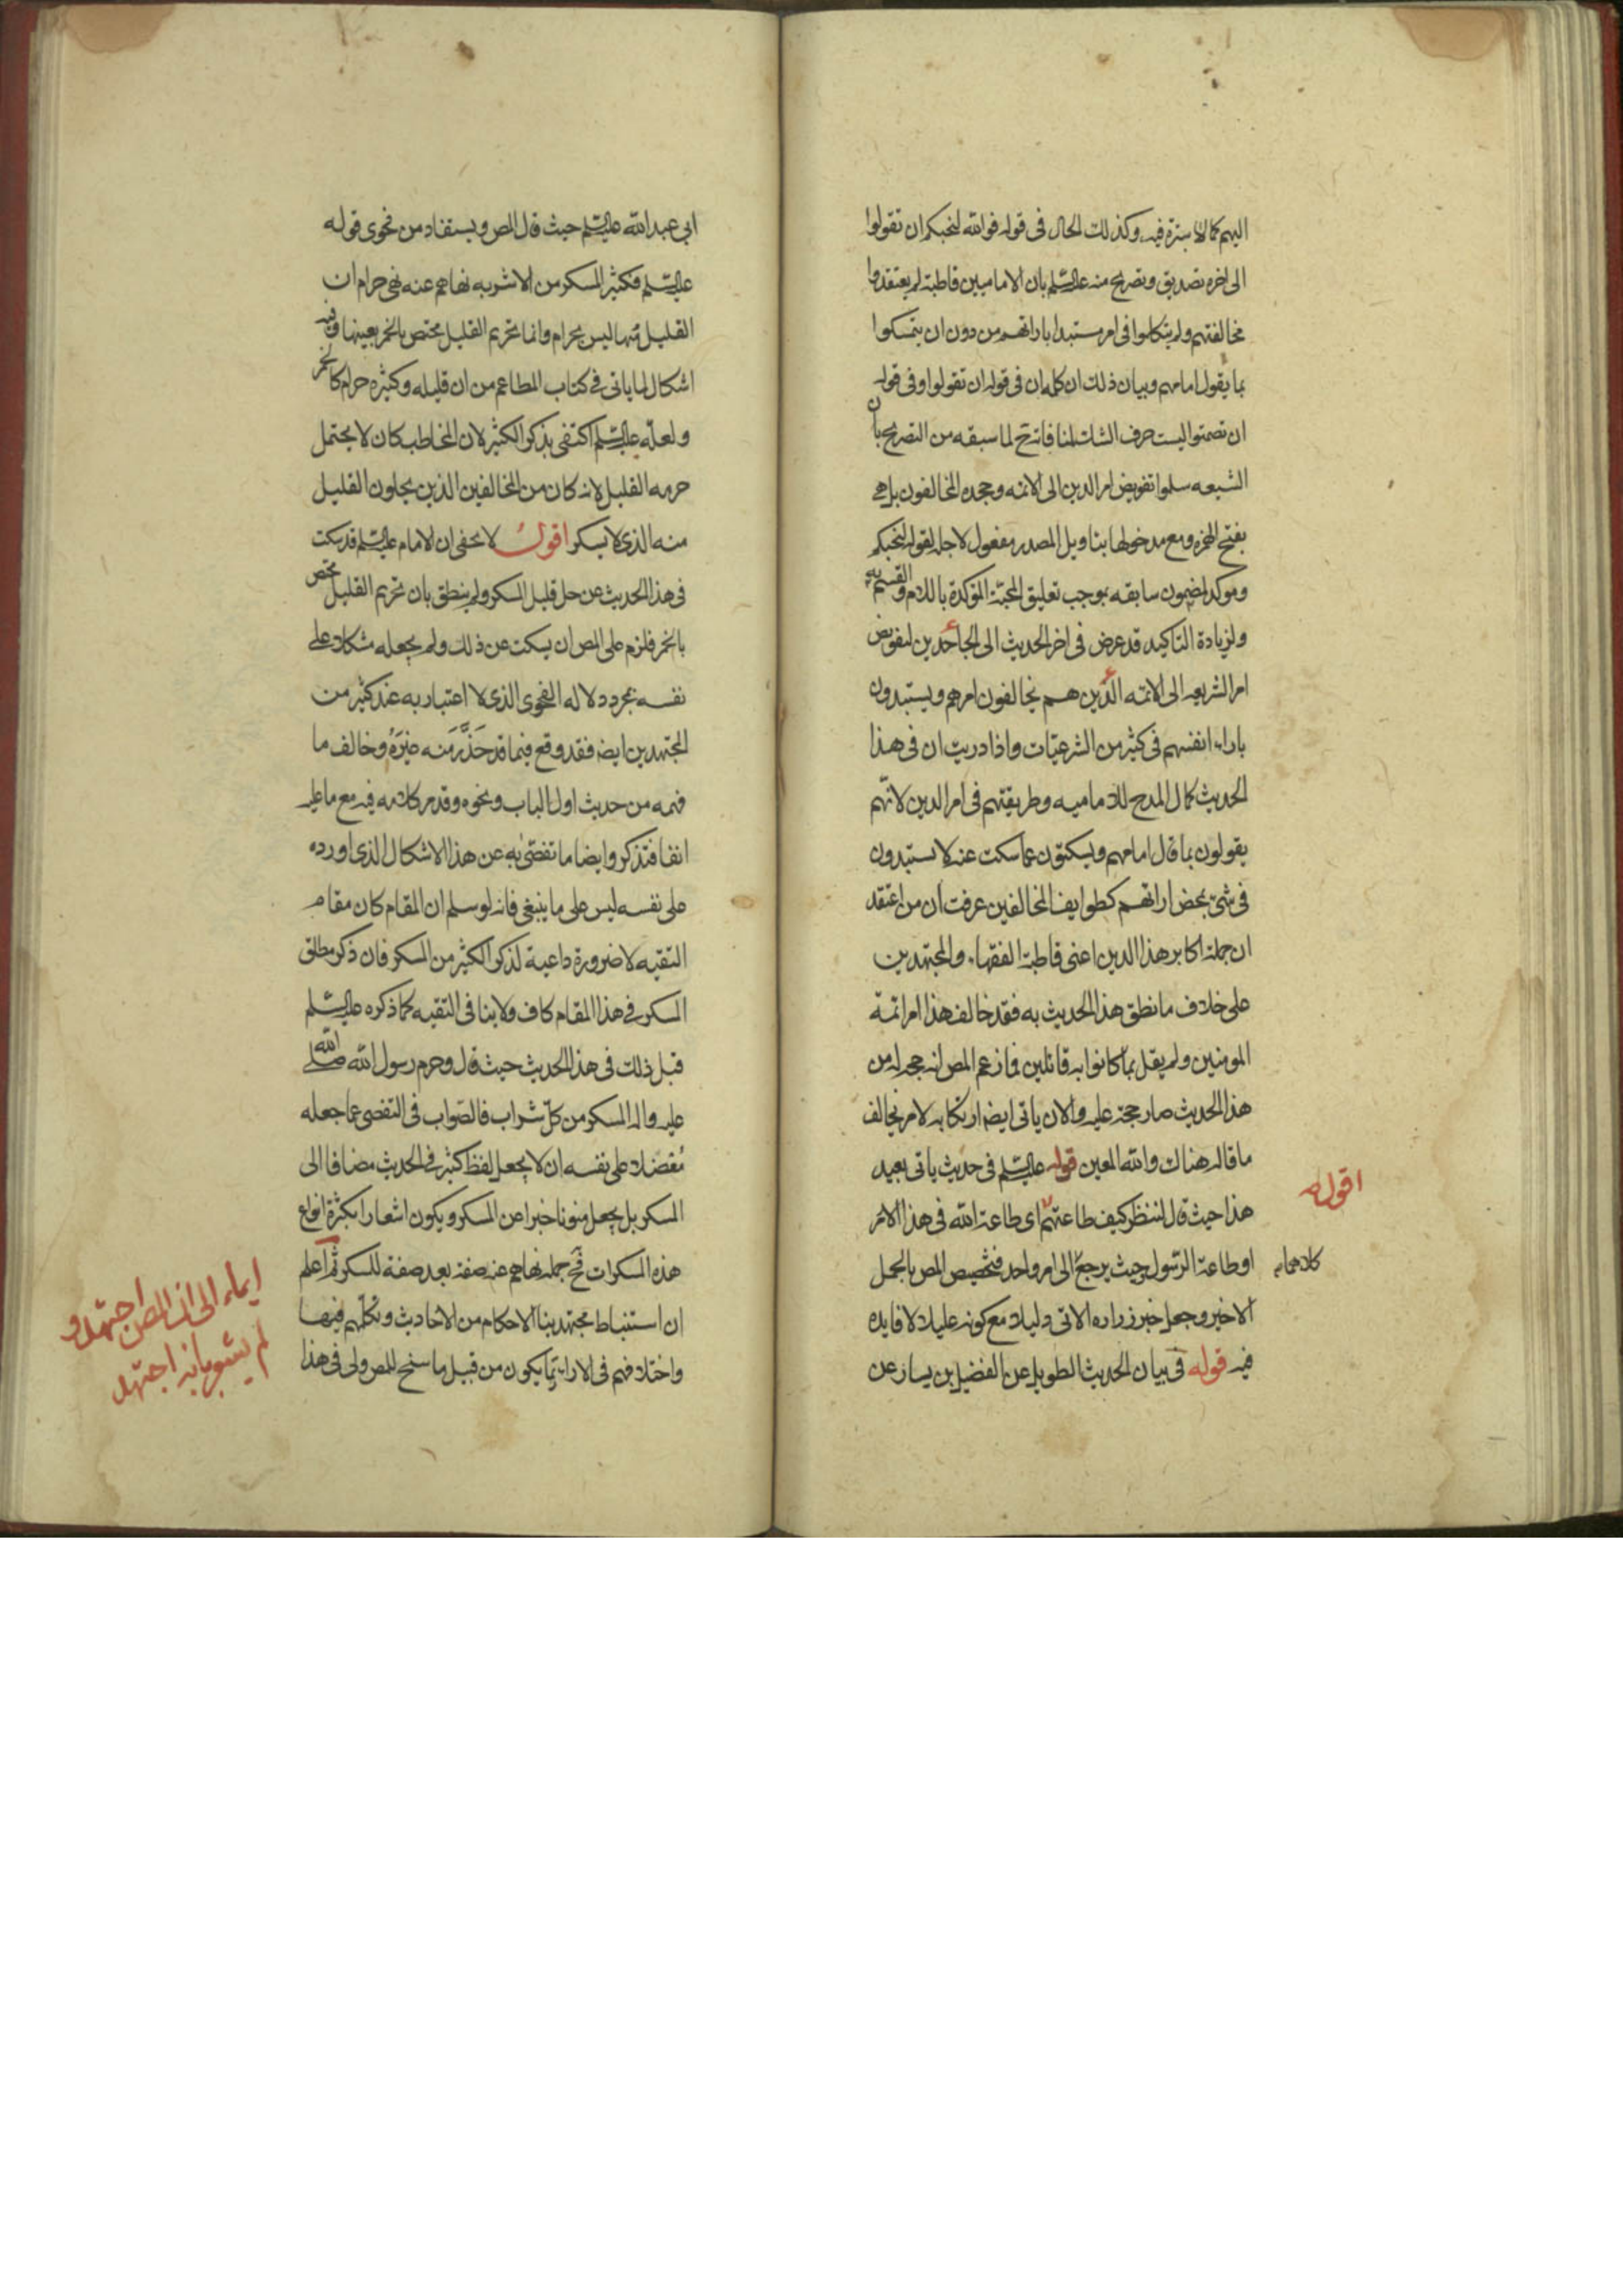 اليهم كمالا سترة فيه وكذلك الحال فى قوله فوالله لنحبكم ان تقولوا
الى اخره تصديق وتصريح منه عليه السلم بان الاماميين قاطبة لم يعتقدوا
مخالفتهم ولم يتكلموا فى امر مستبدا باراتهم من دون ان يتمسكوا
بما يقول امامهم وبيان ذلك ان كلمه ان فى قوله ان تقولوا وفى قوله
ان تصمتوا ليست حرف الشك لمنافاته لما سبقه من التصريح بان
الشيعه سلموا تفويض امر الدين الى الائمه وجحده المخالفون بل هى
بفتح الهمزه ومع مدخولها بتاويل المصدر مفعول لاجله لقوله لنحبكم
وموكد لمضمون سابقه بموجب تعليق المحبة المؤكدة باللام والقسم به
ولزيادة التاكيد قد عرض فى اخر الحديث الى الجاحدين لتفويض
امر الشريعه الى الائمه الذين هم يخالفون امرهم ويستبدون
باراء انفسهم فى كثير من الشرعيات واذا دريت ان فى هذا
الحديث كمال المدح للاماميه وطريقتهم فى امر الدين لانهم
يقولون بما قال امامهم ويسكتون عما سكت عنه لا يستبدون
فى شئ بمحض اراتهم كطوايف المخالفين عرفت ان من اعتقد
ان جملة اكابر هذا الدين اعنى قاطبة الفقهاء والمجتهدين
على خلاف ما نطق هذا الحديث به فقد خالف هذا امر ائمة
المومنين ولم يقل بما كانوا به قائلين فما زعم المص انه حجة له من
هذا الحديث صار حجة عليه والان ياتى ايضا ارتكابه لامر يخالف
ما قاله هناك والله المعين قوله عليه السلم فى حديث ياتى بعيد
اقول
هذا حيث قال لننظر كيف طاعتهم اى طاعة الله فى هذا الامر
او طاعة الرسول وحيث يرجع الى امر واحد فتخصيص المص بالمحمل
كلاهما
الاخير وجعل خبر زراره الاتى دليلا مع كونه عليلا لا فايده
فيه قوله فى بيان الحديث الطويل عن الفضيل بن يسار عن
ابى عبد الله عليه السلم حيث قال المص ويستفاد من فحوى قوله
عليه السلم فكثير المسكر من الاشربه نهاهم عنه نهى حرام ان
القليل منها ليس بحرام وانما تحريم القليل مختص بالخمر بعينها وفيه
اشكال لما ياتى فى كتاب المطاعم من ان قليله وكثيره حرام كالخمر
ولعله عليه السلم اكتفى بذكر الكثير لان المخاطب كان لا يحتمل
حرمه القليل لانه كان من المخالفين الذين يحلون القليل
منه الذى لا يسكر اقول لا يخفى ان الامام عليه السلم قد سكت
فى هذا الحديث عن حل قليل المسكر ولم ينطق بان تحريم القليل مختص
بالخمر فلزم على المص ان يسكت عن ذلك ولم يجعله مشكلا على
نفسه بمجرد دلاله الفحوى الذى لا اعتبار به عند كثير من
المجتهدين ايضا فقد وقع فيما قد حذر منه غيره وخالف ما
فهمه من حديث اول الباب ونحوه وقد مر كلامه فيه مع ما عليه
انفا فتذكر وايضا ما تفصى به عن هذا الاشكال الذى اورده
على نفسه ليس على ما ينبغى فانه لو سلم ان المقام كان مقام
التقيه لا ضرورة داعية لذكر الكثير من المسكر فان ذكر مطلق
المسكر فى هذا المقام كاف ولا ينافى التقيه كما ذكره عليه السلم
قبل ذلك فى هذا الحديث حيث قال وحرم رسول الله صلى الله
عليه واله المسكر من كل شراب فالصواب فى التفصى عما جعله
معضلا على نفسه ان لا يجعل لفظ كثير فى الحديث مضافا الى
المسكر بل يجعل منونا خبرا عن المسكر ويكون اشعارا بكثرة انواع
هذه المسكرات فح جملة نهاهم عنه صفة بعد صفة للمسكر ثم اعلم
ان استنباط مجتهدينا الاحكام من الاحاديث وتكلمهم فيها
واختلافهم فى الاراء ربما يكون من قبيل ما سنح للمص ولى فى هذا
ايماء الى ان المص اجتهد و
لم يشعر بانه اجتهد